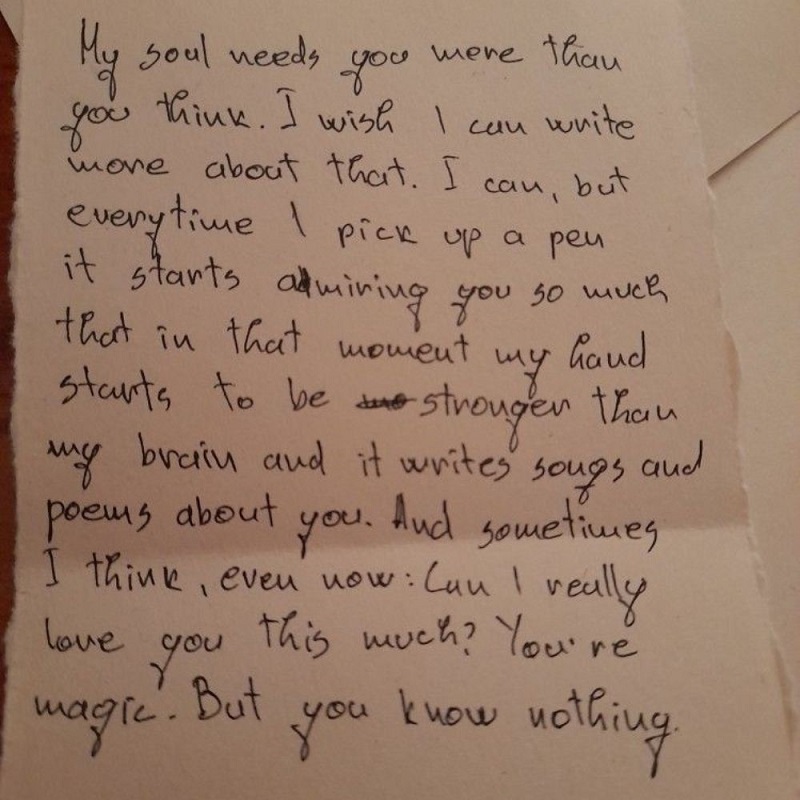 My soul needs you more than
you think. I wish I can write
more about that. I can, but
everytime I pick up a pen
it starts admiring you so much
that in that moment my hand
starts to be stronger than
my brain and it writes songs and
poems about you. And sometimes
I think, even now: Can I really
love you this much? You're
magic. But you know nothing.